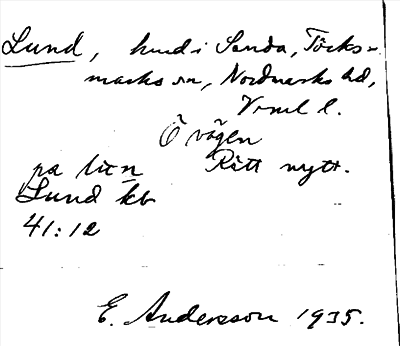 Lund, hmd i Sanda, Töcks-
marks sn, Nordmarks hd,
Vrml l.
Ö vägen
på Rätt nytt.
Lund kb
41:12
E. Andersson 1935.